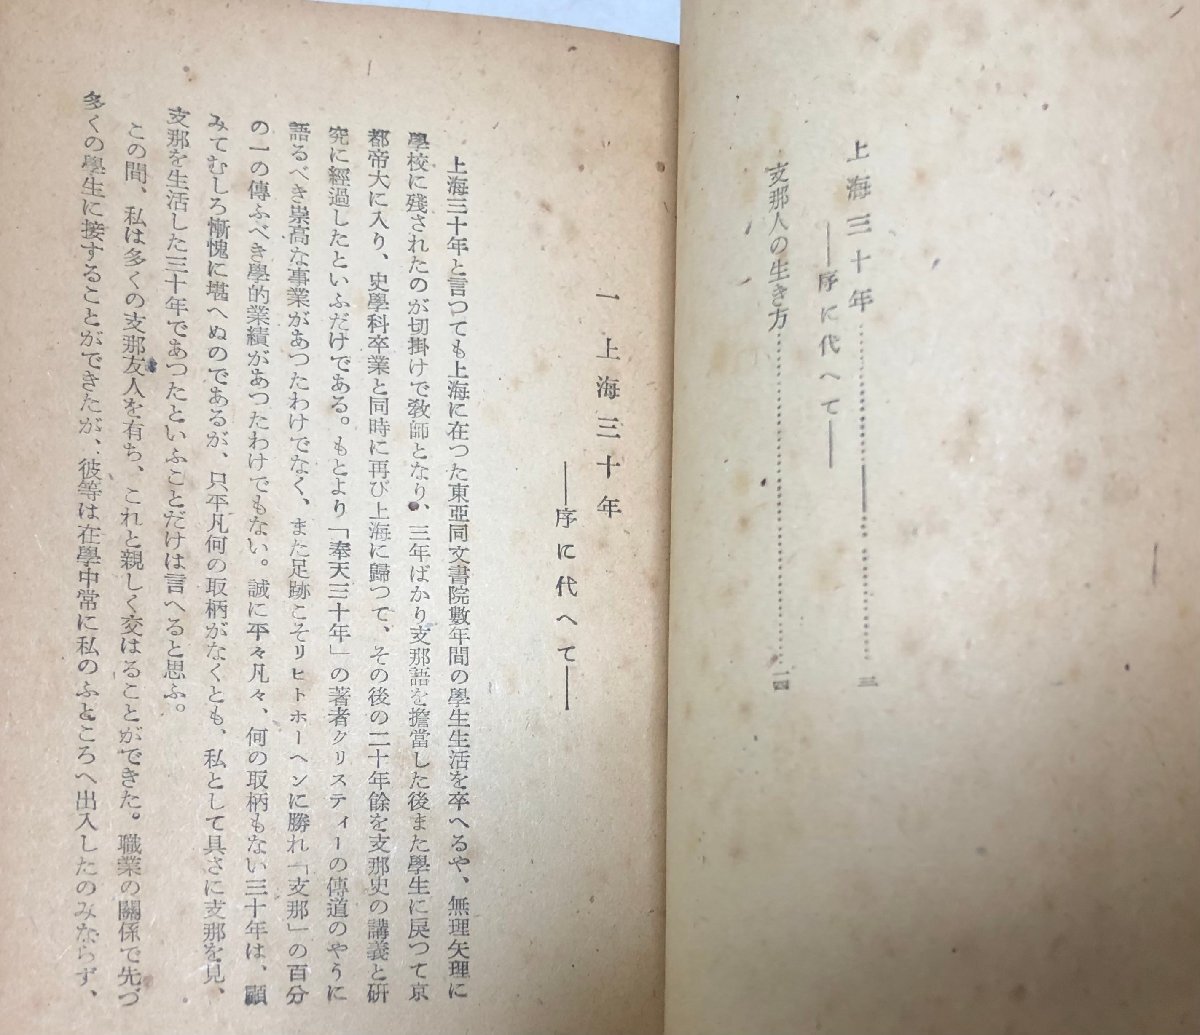 上海三十年……………………三
――序に代へて――
支那人の生き方……………………一四
一 上海三十年
――序に代へて――
上海三十年と言つても上海に在つた東亞同文書院數年間の學生生活を卒へるや、無理矢理に
學校に殘されたのが切掛けで敎師となり、三年ばかり支那語を擔當した後また學生に戾つて京
都帝大に入り、史學科卒業と同時に再び上海に歸つて、その後の二十年餘を支那史の講義と硏
究に經過したといふだけである。もとより「奉天三十年」の著者クリスティーの傳道のやうに
語るべき崇高な事業があつたわけでなく、また足跡こそリヒトホーヘンに勝れ「支那」の百分
の一の傳ふべき學的業績があつたわけでもない。誠に平々凡々、何の取柄もない三十年は、顧
みてむしろ慚愧に堪へぬのであるが、只平凡何の取柄がなくとも、私として具さに支那を見、
支那を生活した三十年であつたといふことだけは言へると思ふ。
この間、私は多くの支那友人を有ち、これと親しく交はることができた。職業の關係で先づ
多くの學生に接することができたが、彼等は在學中常に私のふところへ出入したのみならず、